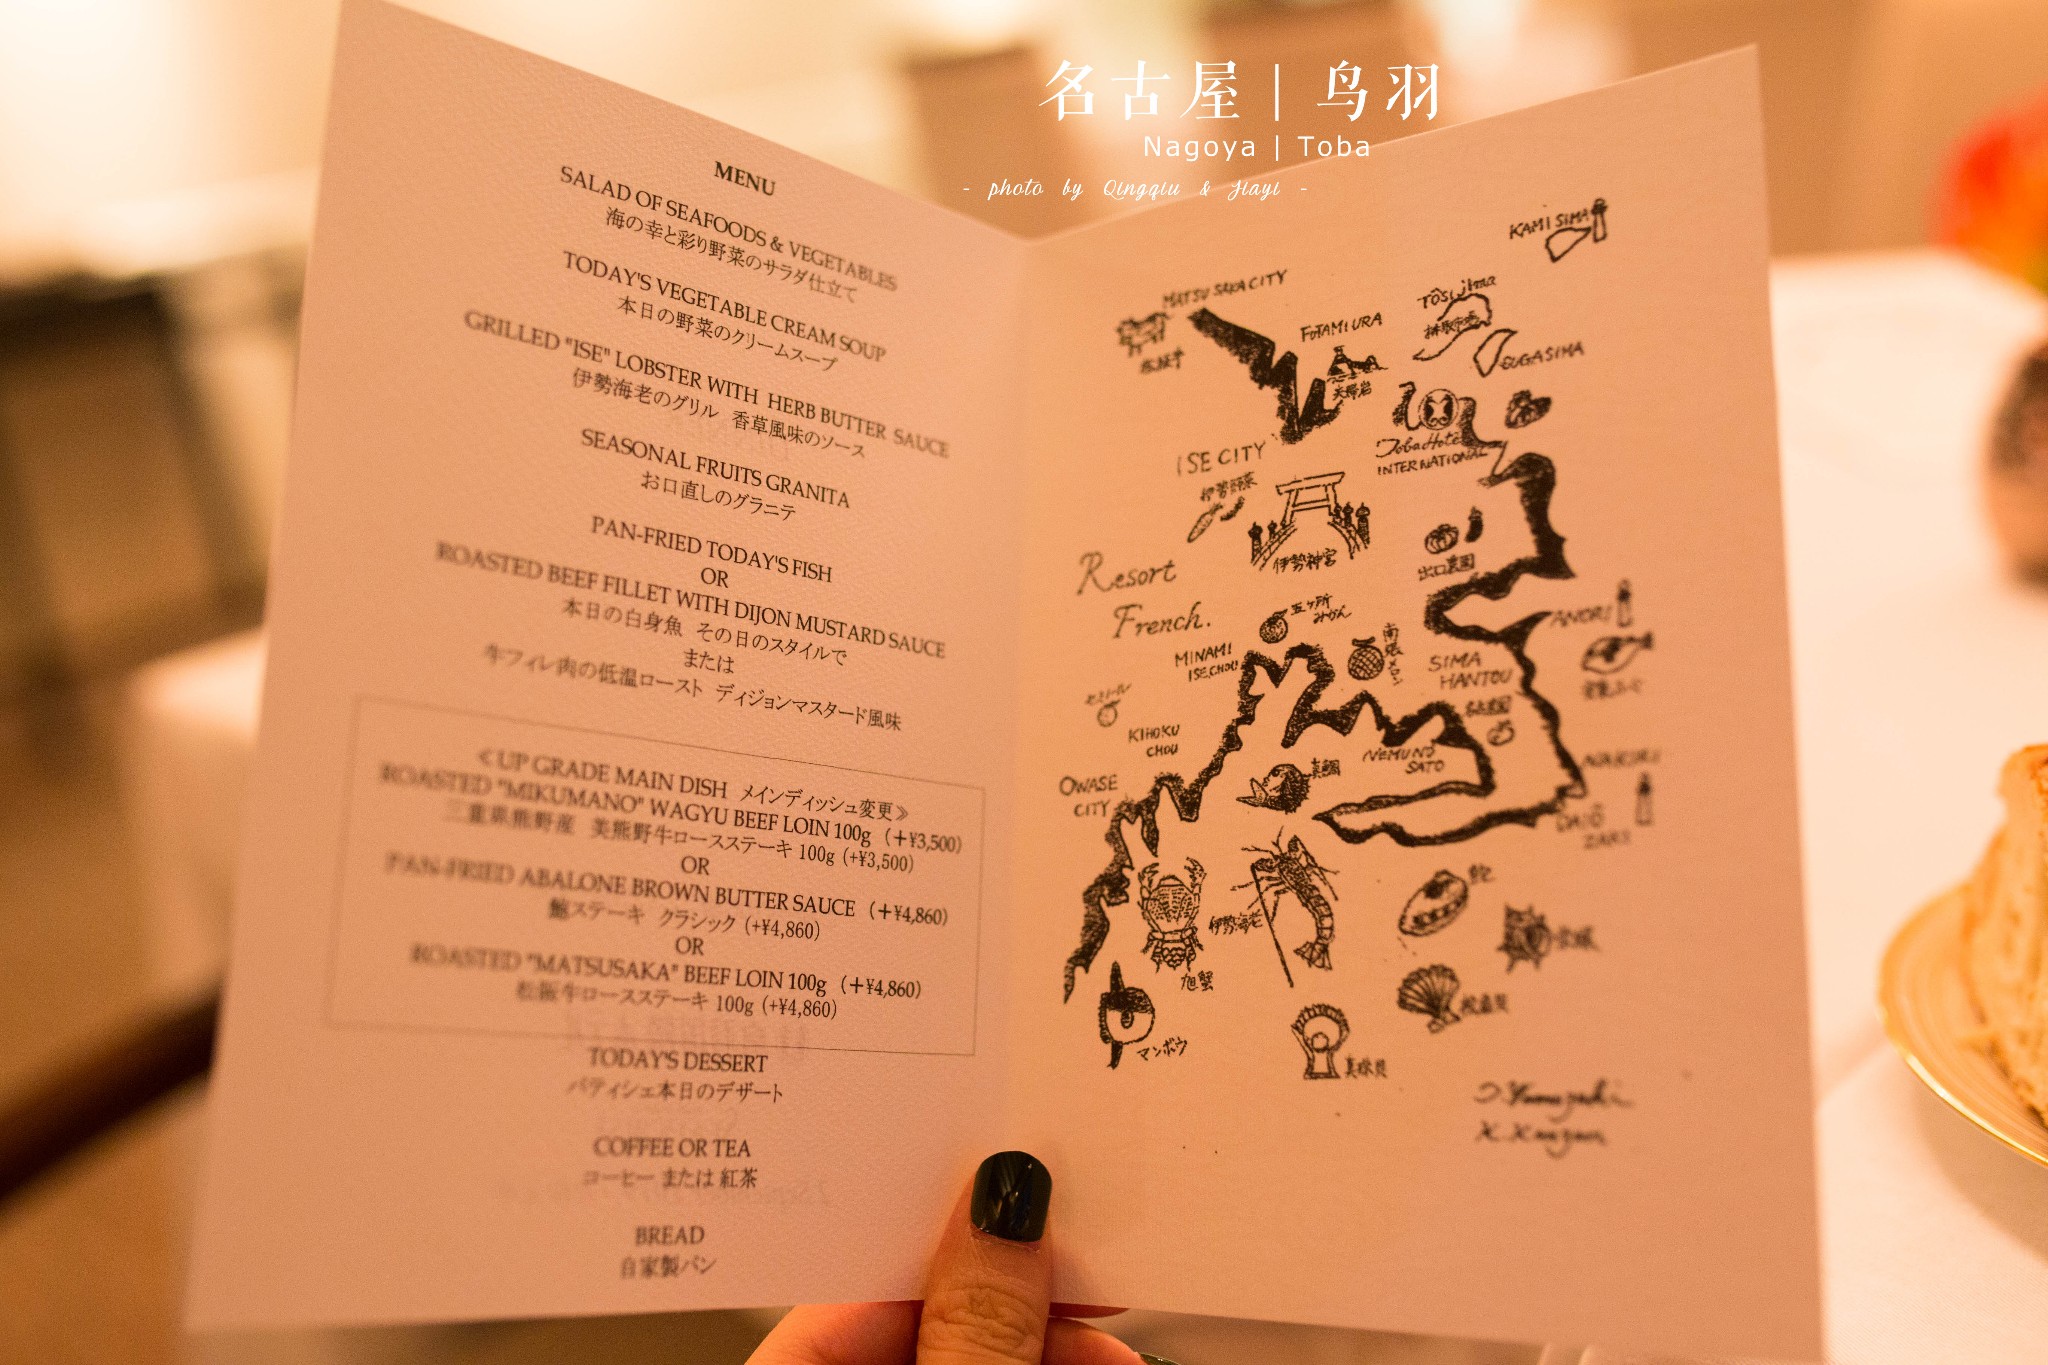 名古屋 | 鸟羽
Nagoya | Toba
- photo by Qingqiu & Jiayi -
MENU
SALAD OF SEAFOODS & VEGETABLES
海の幸と彩り野菜のサラダ仕立て
TODAY'S VEGETABLE CREAM SOUP
本日の野菜のクリームスープ
GRILLED "ISE" LOBSTER WITH HERB BUTTER SAUCE
伊勢海老のグリル 香草風味のソース
SEASONAL FRUITS GRANITA
お口直しのグラニテ
PAN-FRIED TODAY'S FISH
OR
ROASTED BEEF FILLET WITH DIJON MUSTARD SAUCE
本日の白身魚 その日のスタイルで
または
牛フィレ肉の低温ロースト ディジョンマスタード風味
≪UP GRADE MAIN DISH メインディッシュ変更≫
ROASTED "MIKUMANO" WAGYU BEEF LOIN 100g (+¥3,500)
三重県熊野産 美熊野牛ロースステーキ 100g (+¥3,500)
OR
PAN-FRIED ABALONE BROWN BUTTER SAUCE (+¥4,860)
鮑ステーキ クラシック (+¥4,860)
OR
ROASTED "MATSUSAKA" BEEF LOIN 100g (+¥4,860)
松阪牛ロースステーキ 100g (+¥4,860)
TODAY'S DESSERT
パティシェ本日のデザート
COFFEE OR TEA
コーヒー または 紅茶
BREAD
自家製パン
KAMISIMA
MATSUSAKA CITY
松阪牛
FUTAMIURA
夫婦岩
Tôsijima
SUGASIMA
Toba Hotel
INTERNATIONAL
ISE CITY
伊勢野菜
伊勢神宮
出口農園
Resort
French.
五ヶ所
みかん
MINAMI
ISE.CHOU
南張メロン
SIMA
HANTOU
ANORI
安乗ふぐ
KIHOKU
CHOU
OWASE
CITY
真鯛
NEMUNO
SATO
NAKIRI
DAIÔ
ZAKI
伊勢海老
旭蟹
マンボウ
真珠貝